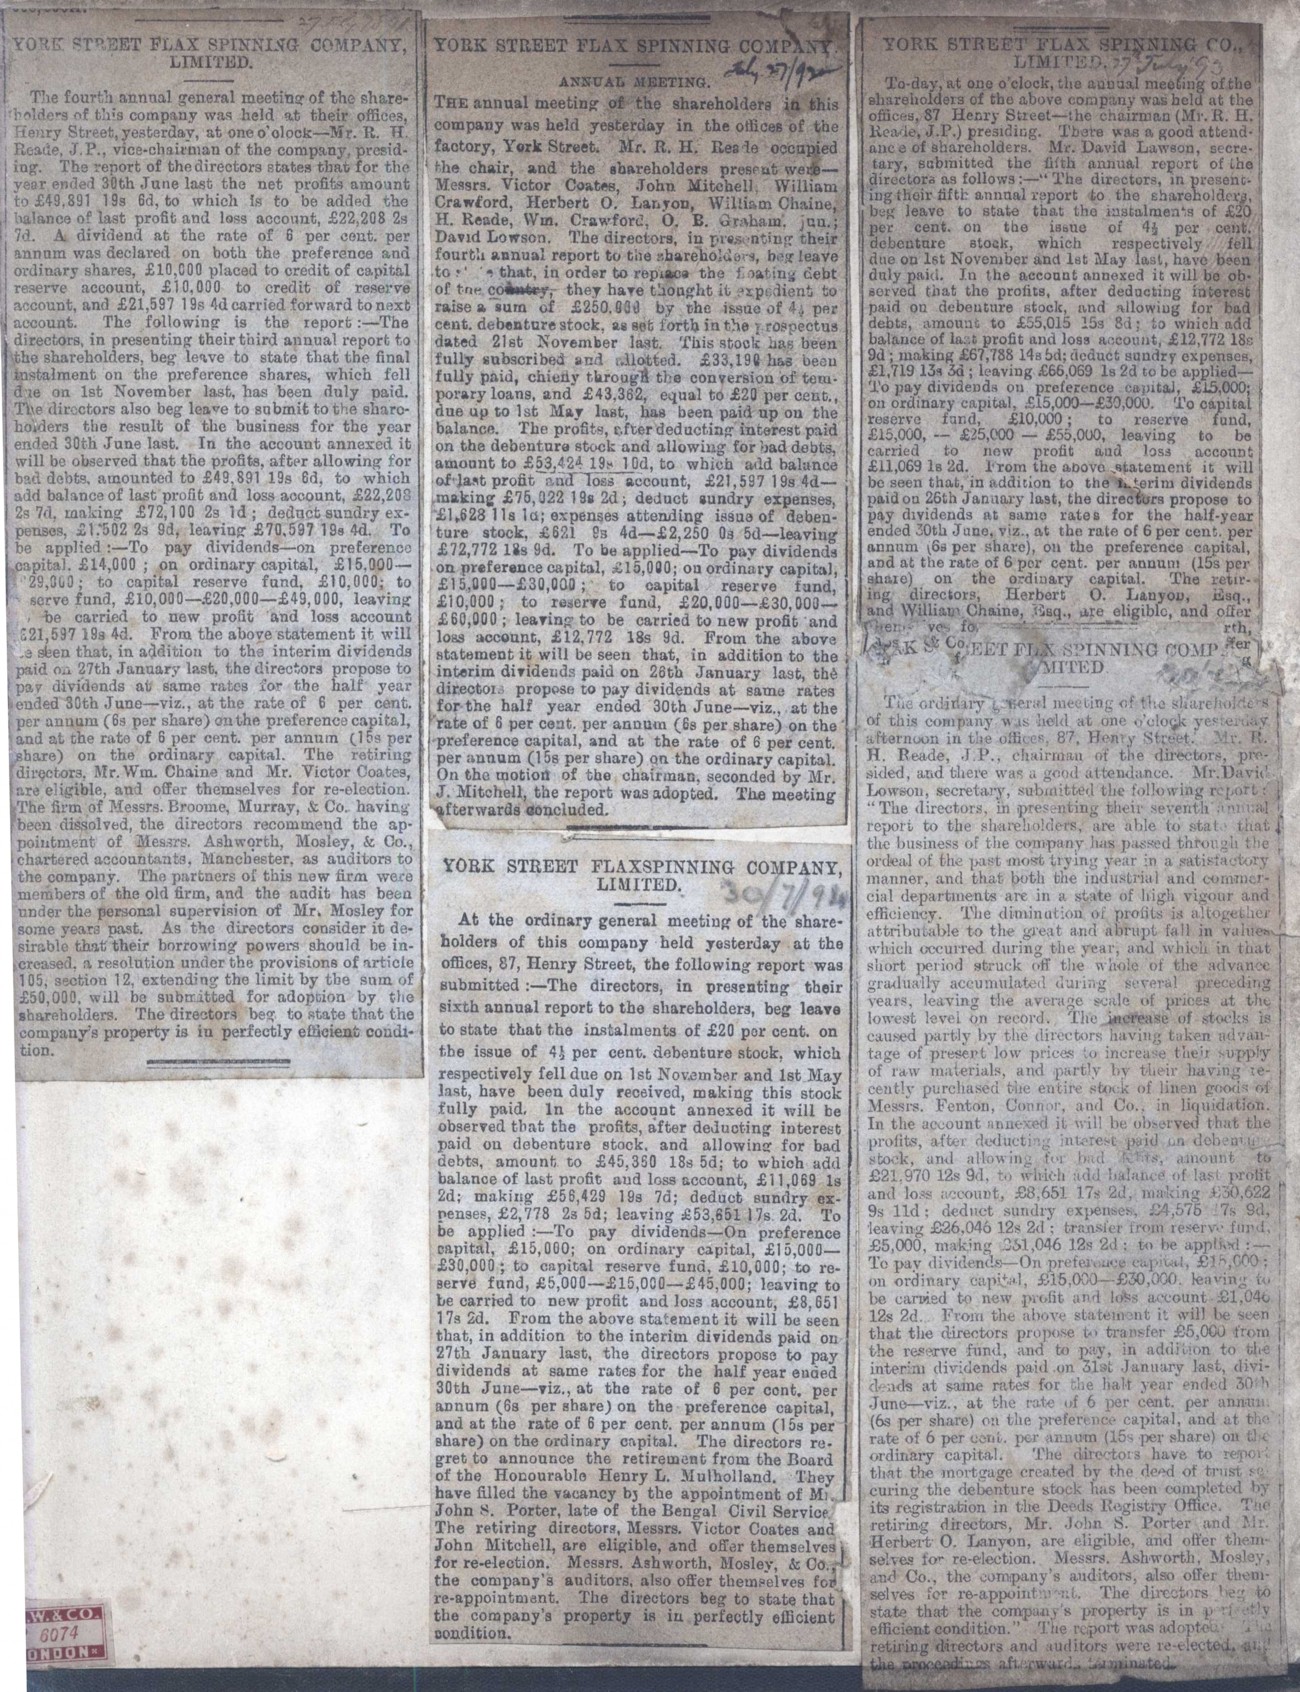 YORK STREET FLAX SPINNING COMPANY,
LIMITED.
The fourth annual general meeting of the share-
holders of this company was held at their offices,
Henry Street, yesterday, at one o'clock—Mr. R. H.
Reade, J.P., vice-chairman of the company, presid-
ing. The report of the directors states that for the
year ended 30th June last the net profits amount
to £49,891 19s 6d, to which is to be added the
balance of last profit and loss account, £22,208 2s
7d. A dividend at the rate of 6 per cent. per
annum was declared on both the preference and
ordinary shares, £10,000 placed to credit of capital
reserve account, £10,000 to credit of reserve
account, and £21,597 19s 4d carried forward to next
account. The following is the report:—The
directors, in presenting their third annual report to
the shareholders, beg leave to state that the final
instalment on the preference shares, which fell
due on 1st November last, has been duly paid.
The directors also beg leave to submit to the share-
holders the result of the business for the year
ended 30th June last. In the account annexed it
will be observed that the profits, after allowing for
bad debts, amounted to £49,891 19s 6d, to which
add balance of last profit and loss account, £22,208
2s 7d, making £72,100 2s 1d; deduct sundry ex-
penses, £1,502 2s 9d, leaving £70,597 19s 4d. To
be applied:—To pay dividends—on preference
capital, £14,000; on ordinary capital, £15,000—
29,000; to capital reserve fund, £10,000; to
serve fund, £10,000—£20,000—£49,000, leaving
be carried to new profit and loss account
£21,597 19s 4d. From the above statement it will
be seen that, in addition to the interim dividends
paid on 27th January last, the directors propose to
pay dividends at same rates for the half year
ended 30th June—viz., at the rate of 6 per cent.
per annum (6s per share) on the preference capital,
and at the rate of 6 per cent. per annum (15s per
share) on the ordinary capital. The retiring
directors, Mr. Wm. Chaine and Mr. Victor Coates,
are eligible, and offer themselves for re-election.
The firm of Messrs. Broome, Murray, & Co. having
been dissolved, the directors recommend the ap-
pointment of Messrs. Ashworth, Mosley, & Co.,
chartered accountants, Manchester, as auditors to
the company. The partners of this new firm were
members of the old firm, and the audit has been
under the personal supervision of Mr. Mosley for
some years past. As the directors consider it de-
sirable that their borrowing powers should be in-
creased, a resolution under the provisions of article
105, section 12, extending the limit by the sum of
£50,000, will be submitted for adoption by the
shareholders. The directors beg to state that the
company's property is in perfectly efficient condi-
tion.
W. & CO.
6074
LONDON
YORK STREET FLAX SPINNING COMPANY.
July 27/92
ANNUAL MEETING.
THE annual meeting of the shareholders in this
company was held yesterday in the offices of the
factory, York Street. Mr. R. H. Reade occupied
the chair, and the shareholders present were—
Messrs. Victor Coates, John Mitchell, William
Crawford, Herbert O. Lanyon, William Chaine,
H. Reade, Wm. Crawford, O. B. Graham, jun.;
David Lowson. The directors, in presenting their
fourth annual report to the shareholders, beg leave
to that, in order to replace the floating debt
of the country, they have thought it expedient to
raise a sum of £250,000 by the issue of 4½ per
cent. debenture stock, as set forth in the prospectus
dated 21st November last. This stock has been
fully subscribed and allotted. £33,190 has been
fully paid, chiefly through the conversion of tem-
porary loans, and £43,362, equal to £20 per cent.,
due up to 1st May last, has been paid up on the
balance. The profits, after deducting interest paid
on the debenture stock and allowing for bad debts,
amount to £53,424 19s 10d, to which add balance
of last profit and loss account, £21,597 19s 4d—
making £75,022 19s 2d; deduct sundry expenses,
£1,628 11s 1d; expenses attending issue of deben-
ture stock, £621 9s 4d—£2,250 0s 5d—leaving
£72,772 18s 9d. To be applied—To pay dividends
on preference capital, £15,000; on ordinary capital,
£15,000—£30,000; to capital reserve fund,
£10,000; to reserve fund, £20,000—£30,000—
£60,000; leaving to be carried to new profit and
loss account, £12,772 18s 9d. From the above
statement it will be seen that, in addition to the
interim dividends paid on 26th January last, the
directors propose to pay dividends at same rates
for the half year ended 30th June—viz., at the
rate of 6 per cent. per annum (6s per share) on the
preference capital, and at the rate of 6 per cent.
per annum (15s per share) on the ordinary capital.
On the motion of the chairman, seconded by Mr.
J. Mitchell, the report was adopted. The meeting
afterwards concluded.
YORK STREET FLAXSPINNING COMPANY,
LIMITED.
30/7/94
At the ordinary general meeting of the share-
holders of this company held yesterday at the
offices, 87, Henry Street, the following report was
submitted:—The directors, in presenting their
sixth annual report to the shareholders, beg leave
to state that the instalments of £20 per cent. on
the issue of 4½ per cent. debenture stock, which
respectively fell due on 1st November and 1st May
last, have been duly received, making this stock
fully paid. In the account annexed it will be
observed that the profits, after deducting interest
paid on debenture stock, and allowing for bad
debts, amount to £45,360 18s 5d; to which add
balance of last profit and loss account, £11,069 1s
2d; making £56,429 19s 7d; deduct sundry ex-
penses, £2,778 2s 5d; leaving £53,651 17s. 2d. To
be applied:—To pay dividends—On preference
capital, £15,000; on ordinary capital, £15,000—
£30,000; to capital reserve fund, £10,000; to re-
serve fund, £5,000—£15,000—£45,000; leaving to
be carried to new profit and loss account, £8,651
17s 2d. From the above statement it will be seen
that, in addition to the interim dividends paid on
27th January last, the directors propose to pay
dividends at same rates for the half year ended
30th June—viz., at the rate of 6 per cent. per
annum (6s per share) on the preference capital,
and at the rate of 6 per cent. per annum (15s per
share) on the ordinary capital. The directors re-
gret to announce the retirement from the Board
of the Honourable Henry L. Mulholland. They
have filled the vacancy by the appointment of Mr.
John S. Porter, late of the Bengal Civil Service.
The retiring directors, Messrs. Victor Coates and
John Mitchell, are eligible, and offer themselves
for re-election. Messrs. Ashworth, Mosley, & Co.,
the company's auditors, also offer themselves for
re-appointment. The directors beg to state that
the company's property is in perfectly efficient
condition.
YORK STREET FLAX SPINNING CO.,
LIMITED. 27 July 93
To-day, at one o'clock, the annual meeting of the
shareholders of the above company was held at the
offices, 87 Henry Street—the chairman (Mr. R. H.
Reade, J.P.) presiding. There was a good attend-
ance of shareholders. Mr. David Lawson, secre-
tary, submitted the fifth annual report of the
directors as follows:—"The directors, in present-
ing their fifth annual report to the shareholders,
beg leave to state that the instalments of £20
per cent. on the issue of 4½ per cent.
debenture stock, which respectively fell
due on 1st November and 1st May last, have been
duly paid. In the account annexed it will be ob-
served that the profits, after deducting interest
paid on debenture stock, and allowing for bad
debts, amount to £55,015 15s 8d; to which add
balance of last profit and loss account, £12,772 18s
9d; making £67,788 14s 5d; deduct sundry expenses,
£1,719 13s 3d; leaving £66,069 1s 2d to be applied—
To pay dividends on preference capital, £15,000;
on ordinary capital, £15,000—£30,000. To capital
reserve fund, £10,000; to reserve fund,
£15,000, — £25,000 — £55,000, leaving to be
carried to new profit and loss account
£11,069 1s 2d. From the above statement it will
be seen that, in addition to the interim dividends
paid on 26th January last, the directors propose to
pay dividends at same rates for the half-year
ended 30th June, viz., at the rate of 6 per cent. per
annum (6s per share), on the preference capital,
and at the rate of 6 per cent. per annum (15s per
share) on the ordinary capital. The retir-
ing directors, Herbert O. Lanyon, Esq.,
and William Chaine, Esq., are eligible, and offer
& Co
STREET FLAX SPINNING COMP
LIMITED
The ordinary general meeting of the shareholders
of this company was held at one o'clock yesterday
afternoon in the offices, 87, Henry Street. Mr. R.
H. Reade, J.P., chairman of the directors, pre-
sided, and there was a good attendance. Mr. David
Lowson, secretary, submitted the following report:
"The directors, in presenting their seventh annual
report to the shareholders, are able to state that
the business of the company has passed through the
ordeal of the past most trying year in a satisfactory
manner, and that both the industrial and commer-
cial departments are in a state of high vigour and
efficiency. The dimination of profits is altogether
attributable to the great and abrupt fall in values
which occurred during the year, and which in that
short period struck off the whole of the advance
gradually accumulated during several preceding
years, leaving the average scale of prices at the
lowest level on record. The increase of stocks is
caused partly by the directors having taken advan-
tage of present low prices to increase their supply
of raw materials, and partly by their having re-
cently purchased the entire stock of linen goods of
Messrs. Fenton, Connor, and Co., in liquidation.
In the account annexed it will be observed that the
profits, after deducting interest paid on debenture
stock, and allowing for bad debts, amount to
£21,970 12s 9d, to which add balance of last profit
and loss account, £8,651 17s 2d, making £30,622
9s 11d; deduct sundry expenses, £4,575 17s 9d,
leaving £26,046 12s 2d; transfer from reserve fund,
£5,000, making £31,046 12s 2d; to be applied:—
To pay dividends—On preference capital, £15,000;
on ordinary capital, £15,000—£30,000, leaving to
be carried to new profit and loss account £1,046
12s 2d. From the above statement it will be seen
that the directors propose to transfer £5,000 from
the reserve fund, and to pay, in addition to the
interim dividends paid on 31st January last, divi-
dends at same rates for the half year ended 30th
June—viz., at the rate of 6 per cent. per annum
(6s per share) on the preference capital, and at the
rate of 6 per cent. per annum (15s per share) on the
ordinary capital. The directors have to report
that the mortgage created by the deed of trust se-
curing the debenture stock has been completed by
its registration in the Deeds Registry Office. The
retiring directors, Mr. John S. Porter and Mr.
Herbert O. Lanyon, are eligible, and offer them-
selves for re-election. Messrs. Ashworth, Mosley,
and Co., the company's auditors, also offer them-
selves for re-appointment. The directors beg to
state that the company's property is in perfectly
efficient condition." The report was adopted. The
retiring directors and auditors were re-elected, and
the proceedings afterwards terminated.